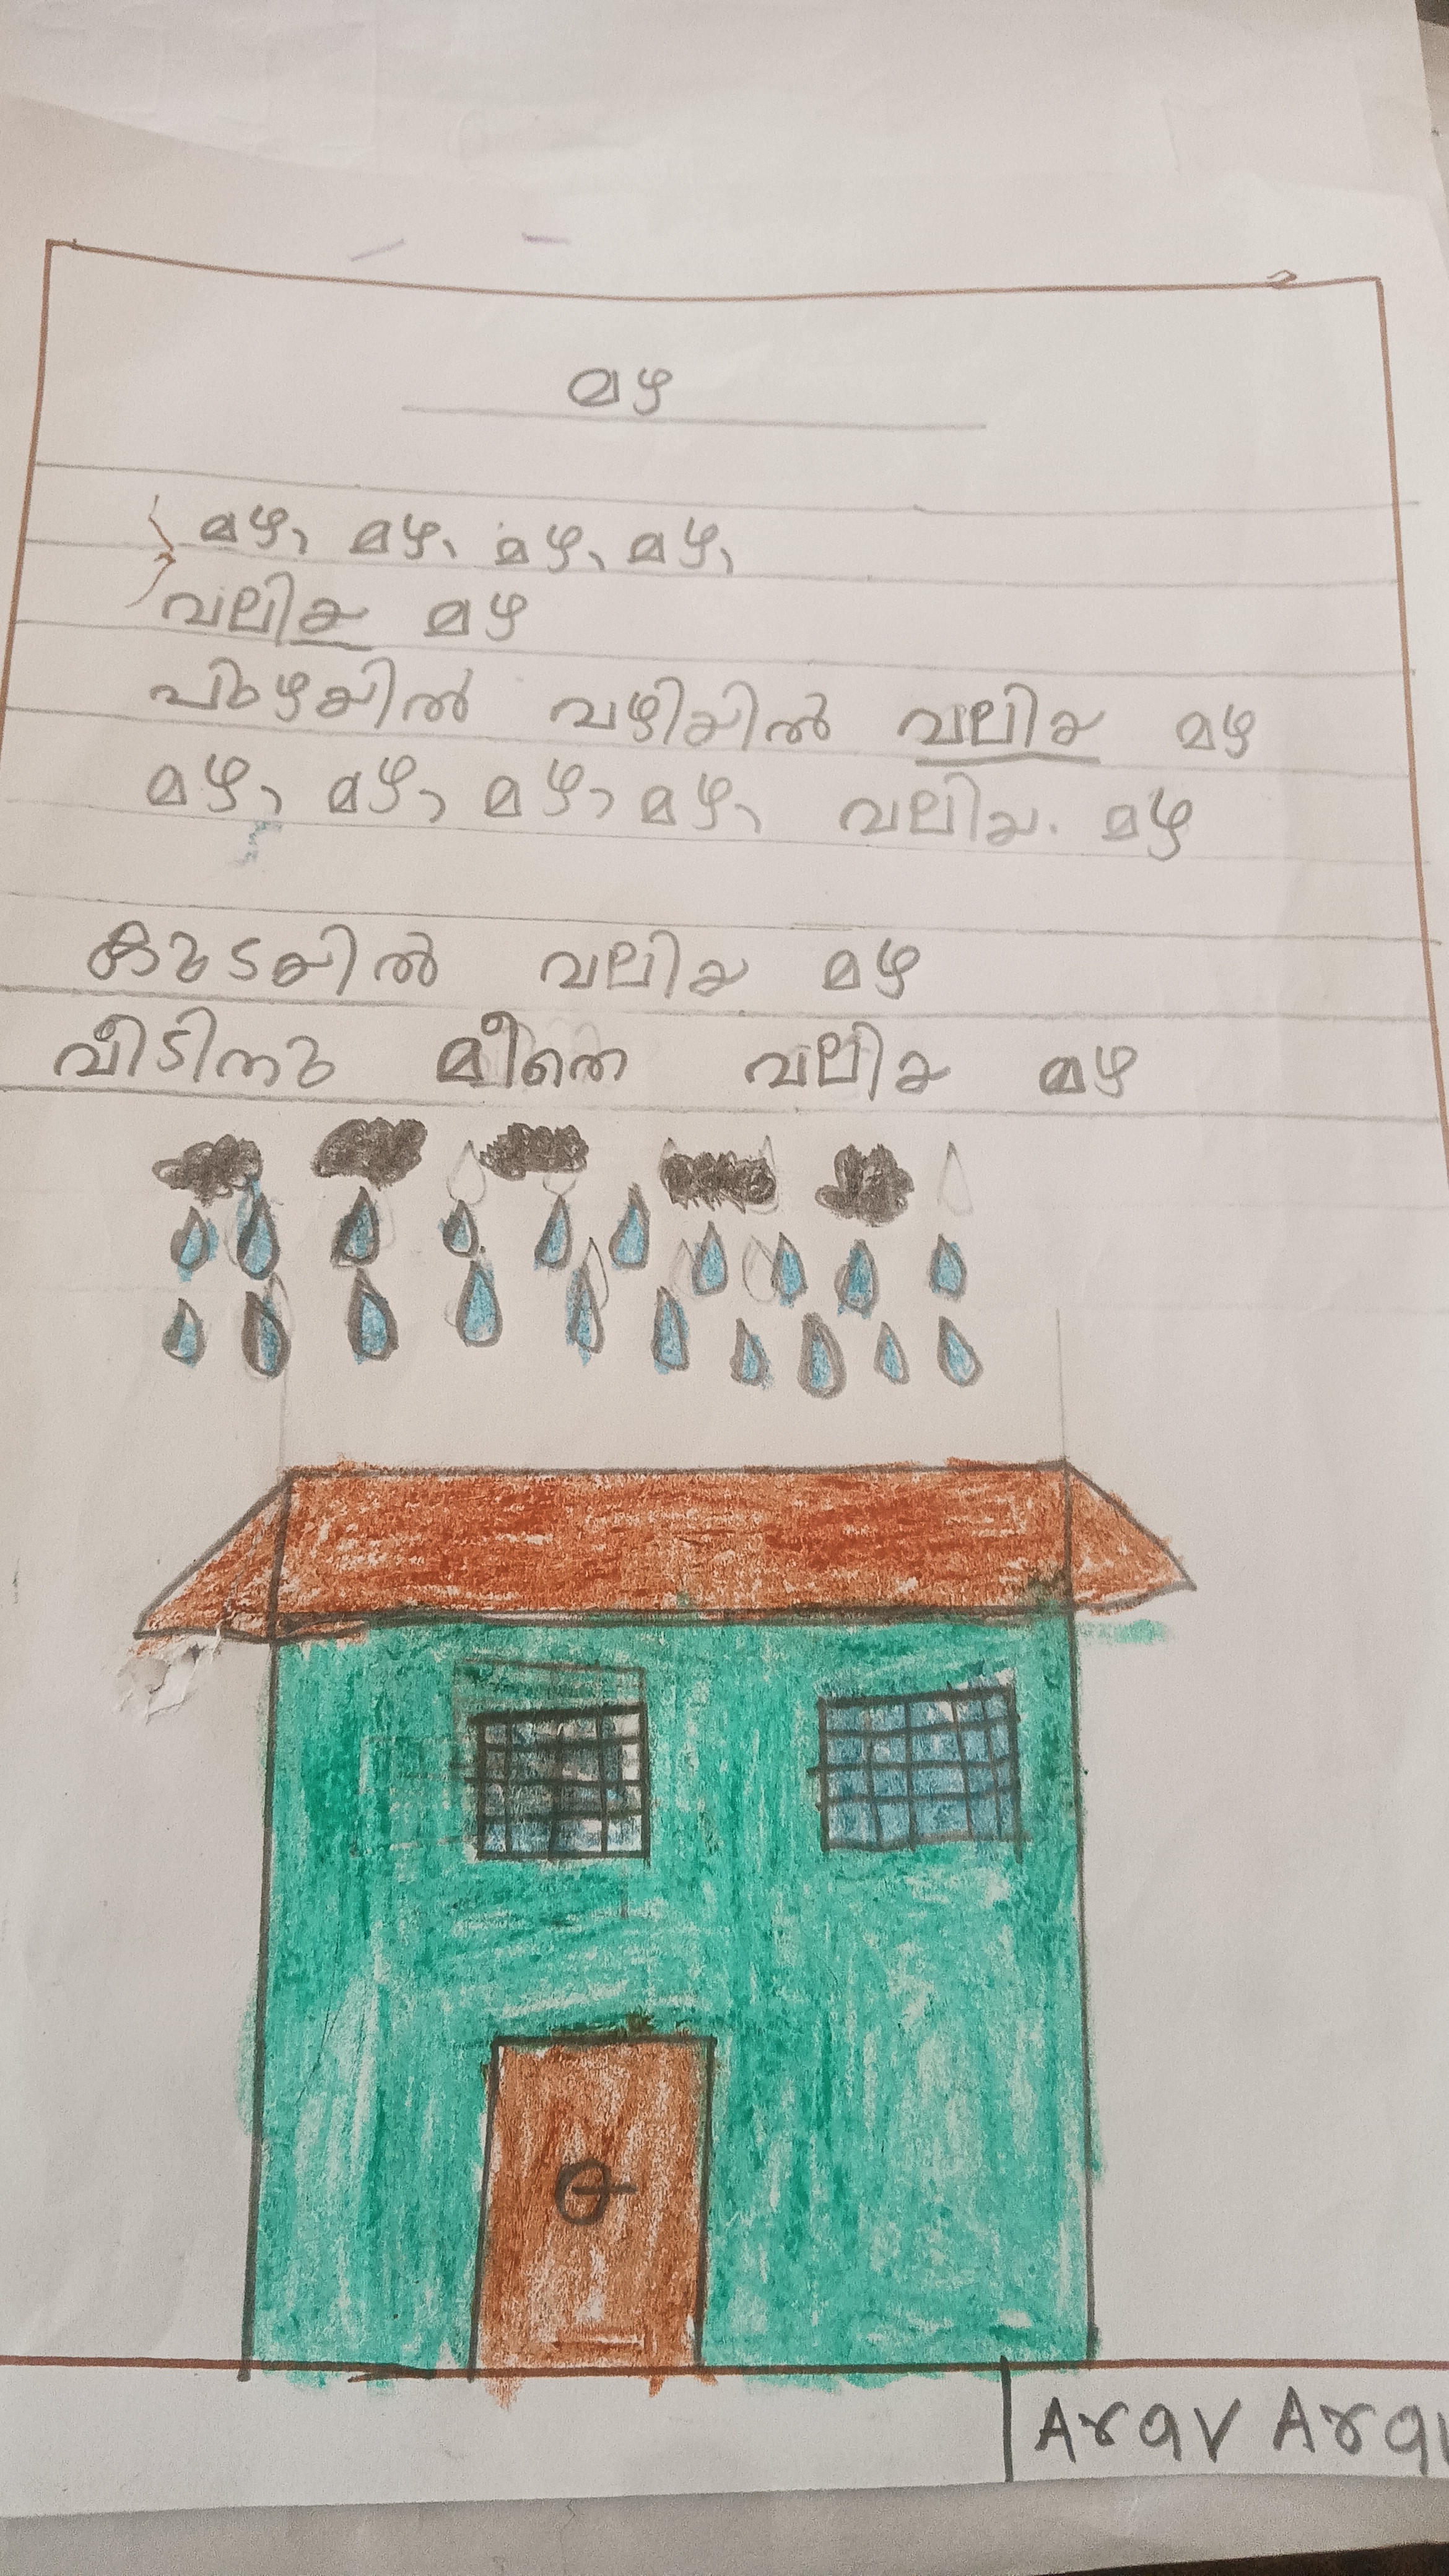 മഴ
മഴ, മഴ, മഴ, മഴ,
വലിയ മഴ
പുഴയിൽ വഴിയിൽ വലിയ മഴ
മഴ, മഴ, മഴ, മഴ, വലിയ. മഴ
കുടയിൽ വലിയ മഴ
വീടിനു മീതെ വലിയ മഴ
Arav